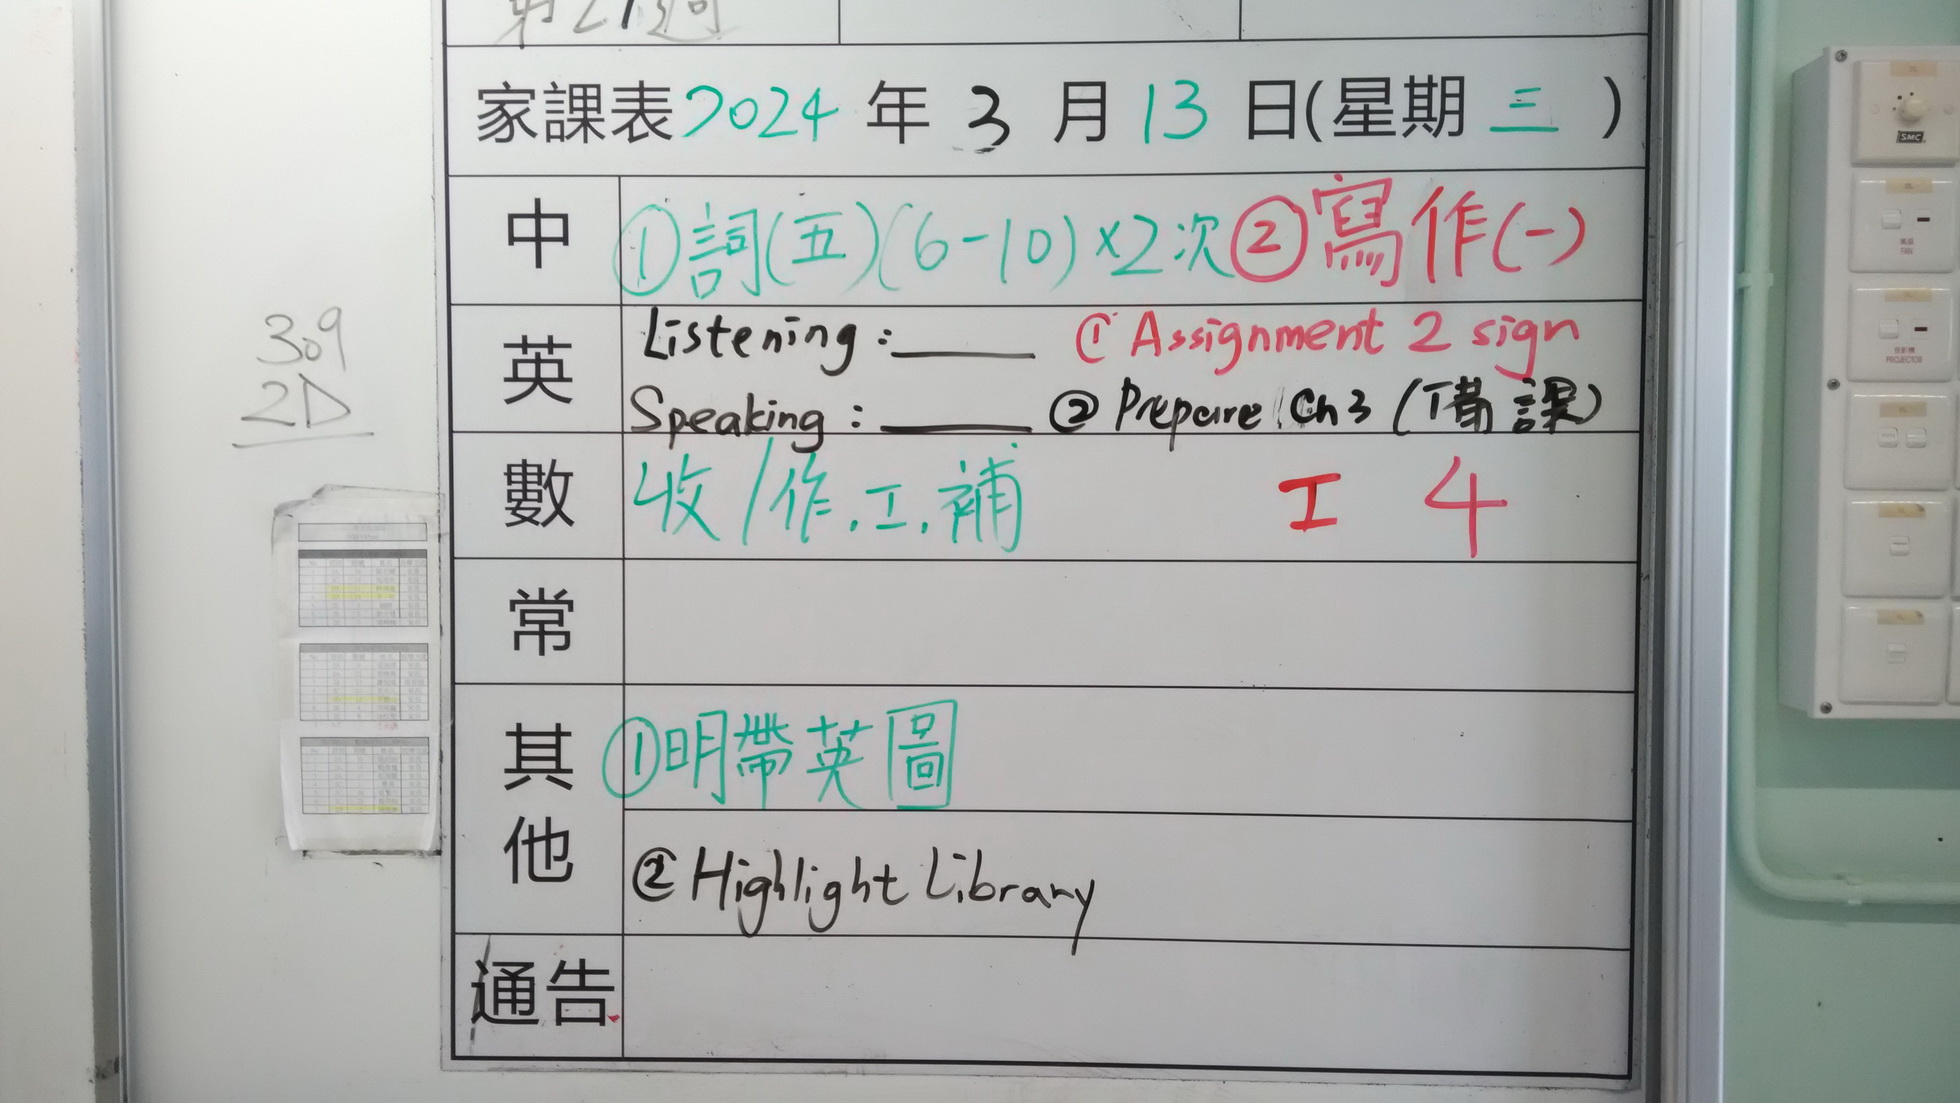 第21週
家課表2024年3月13日(星期三)
中 ①詞(五)(6-10)×2次②寫作(一)
英 Listening:____ ①Assignment 2 sign
Speaking:____ ②Prepare Ch3 (備課)
數 收/作.工.補 工 4
常
其他 ①明帶英圖
②Highlight Library
通告
309
2D
SMC
FAN
PROJECTOR